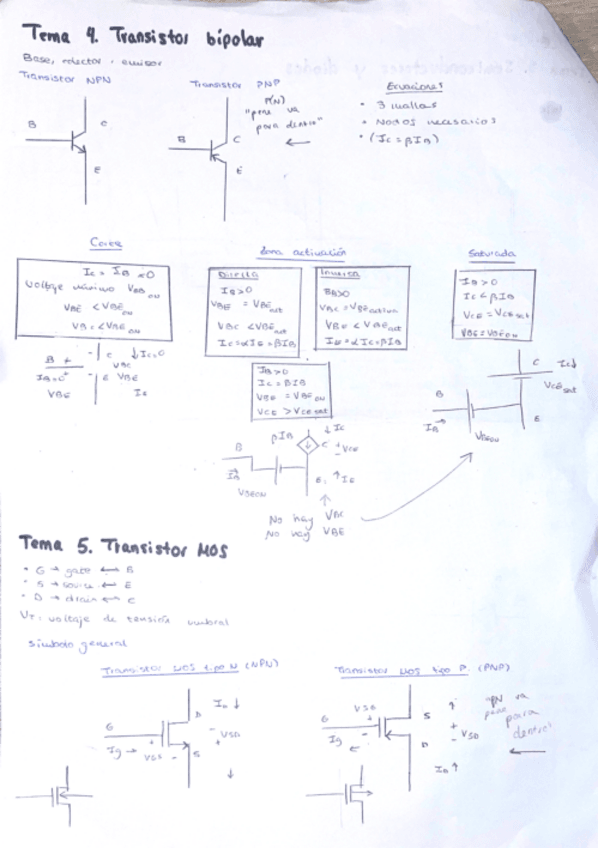 Tema 4. Transistor bipolar
Base, colector, emisor
Transistor NPN
B
C
E
Transistor PNP
P(N)
"pene va
para dentro"
B
C
E
Ecuaciones
• 3 mallas
• Nodos necesarios
• (Ic = βIB)
Corte
Ic = IB = 0
Voltaje máximo VBE ON
VBE < VBE ON
VBC < VBE ON
B +
C
↓Ic=0
VBC
IB=0
E VBE
VBE
IE
Zona activación
Directa
IB>0
VBE = VBE act
VBC < VBE act
Ic = αIE = βIB
Inversa
VBC = VBE activa
VBE < VBE act
IE = αIc = βIB
IB>0
Ic = βIB
VBE = VBE ON
VCE > VCE sat
B
IB
VBEON
βIB
↓Ic
C
+ VCE
-
E, ↑IE
No hay VBC
No hay VBE
Saturada
IB > 0
Ic < βIB
VCE = VCE sat
VBE = VBE ON
C
Ic↓
VCE sat
B
IB
VBEON
E
Tema 5. Transistor MOS
• G → gate ↔ B
• S → source ↔ E
• D → drain ↔ C
VT: voltaje de tensión umbral
Símbolo general
Transistor MOS tipo N (NPN)
G
Ig →
+ VGS -
D
S
ID ↓
- VSD +
↓
Transistor MOS tipo P (PNP)
VSG
G
Ig
←
S
D
↑
+ VSD -
ID ↑
"PN va
pene para
dentro"
←